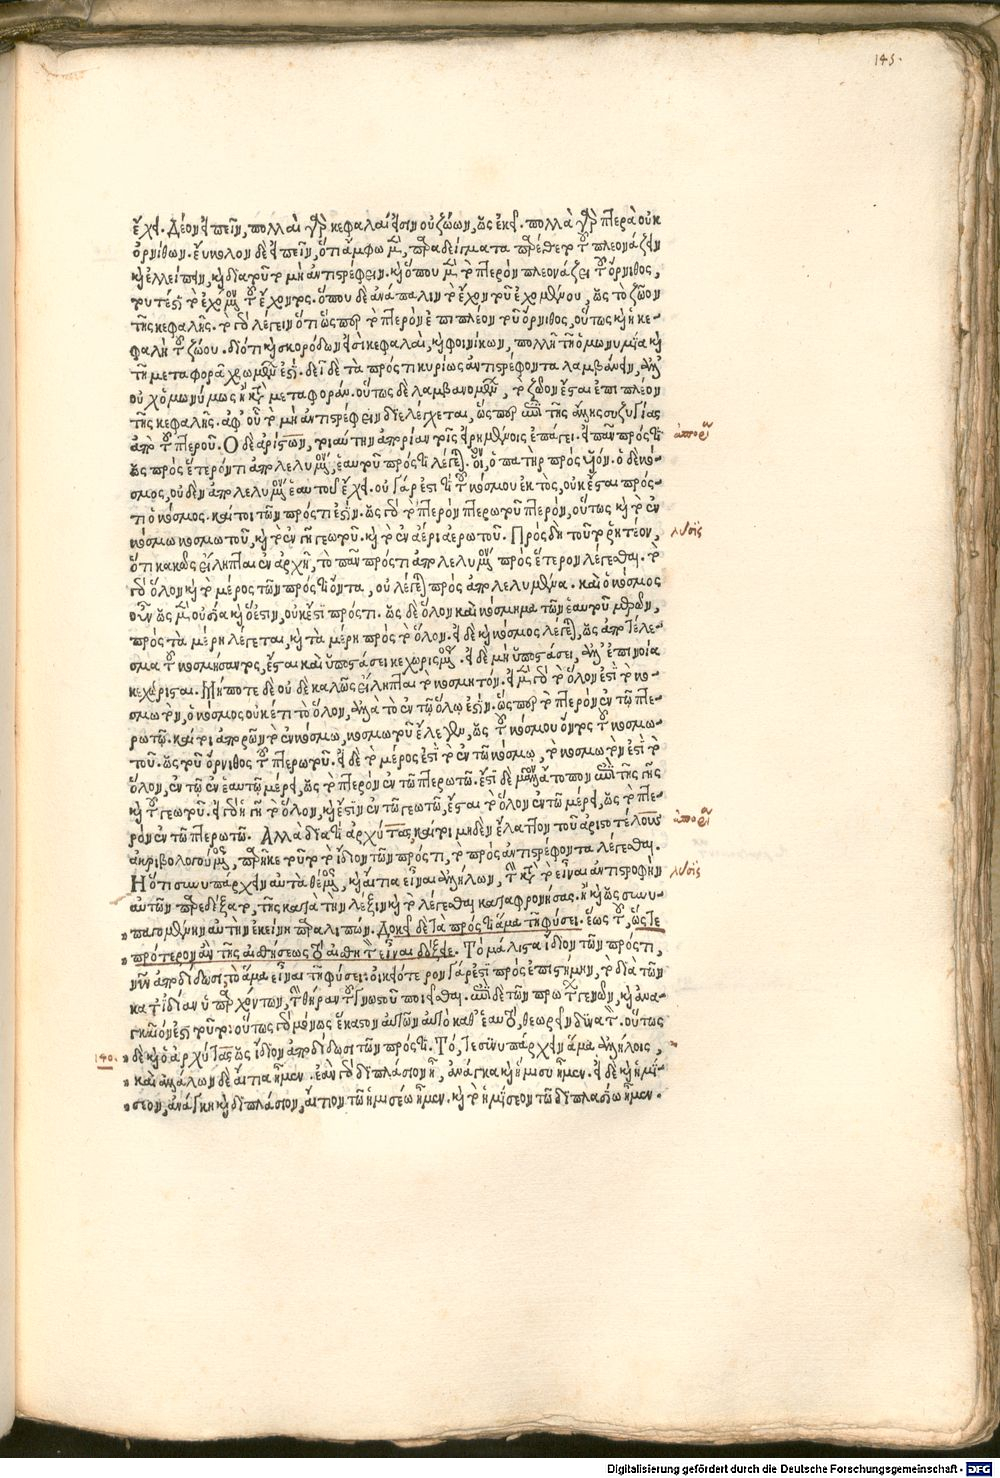 145.
ἔχει. Δέον εἰπεῖν, πολλαὶ γὰρ κεφαλαί εἰσιν οὐ ζώων, ὡς ἐκεῖ. πολλὰ γὰρ πτερὰ οὐκ
ὀρνίθων. εὔκολον δὲ εἰπεῖν, ὅτι ἄμφω μὲν, παραδείγματα παρέθετο τοῦ πλεονάζειν
καὶ ἐλλείπειν, καὶ διὰ τοῦτο μὴ ἀντιστρέφειν. καὶ ὅπου μὲν τὸ πτερὸν πλεονάζει τοῦ ὄρνιθος,
τουτέστι τὸ ἐχόμενον τοῦ ἔχοντος. ὅπου δὲ ἀνάπαλιν τὸ ἔχον τοῦ ἐχομένου, ὡς τὸ ζῶον
τῆς κεφαλῆς. τὸ γὰρ λέγειν ὅτι ὥσπερ τὸ πτερὸν ἐπιπλέον τοῦ ὄρνιθος, οὕτως καὶ ἡ κε-
φαλὴ τοῦ ζώου. διότι καὶ σκορόδων εἰσὶ κεφαλαὶ, καὶ φοινίκων, πολλῇ τῇ ὁμωνυμία καὶ
τῇ μεταφορᾷ χρωμένου ἐστί. δεῖ δὲ τὰ πρός τι κυρίως ἀντιστρέφοντα λαμβάνειν, ἀλλ'
οὐχ ὁμωνύμως ἢ κατὰ μεταφοράν. οὕτως δὲ λαμβανομένων, τὸ ζῶον ἔσται ἐπιπλέον
τῆς κεφαλῆς. ἀφ' οὗ τὸ μὴ ἀντιστρέφειν διελέγχεται, ὥσπερ ἐπὶ τῆς ἄλλης συζυγίας
ἀπὸ τοῦ πτεροῦ. Ὁ δὲ ἀρίστων, τοιαύτην ἀπορίαν τοῖς εἰρημένοις ἐπάγει. εἰ πᾶν πρός τι
ὡς πρὸς ἕτερόν τι ἀπολελυμένον, ἑαυτοῦ πρός τι λέγεται. οἷον, ὁ πατὴρ πρὸς υἱόν. ὁ δὲ κό-
σμος, οὐδὲν ἀπολελυμένον ἑαυτοῦ ἔχει. οὐ γάρ ἐστί τι τοῦ κόσμου ἐκτὸς, οὐκ ἔσται πρός-
τι ὁ κόσμος. καίτοι τῶν πρός τι ἐστίν. ὡς γὰρ τὸ πτερὸν πτερωτοῦ πτερόν, οὕτως καὶ τὸ ἐν
κόσμω κοσμωτοῦ, καὶ τὸ ἐν γῆ γεωτοῦ. καὶ τὸ ἐν ἀέρι ἀερωτοῦ. Πρὸς δὴ τοῦτο ῥητέον,
ὅτι κακῶς εἴληπται ἐν ἀρχῆ, τὸ πᾶν πρός τι ἀπολελυμένον πρὸς ἕτερον λέγεσθαι. τὸ
γὰρ ὅλον καὶ τὸ μέρος τῶν πρός τι ὄντα, οὐ λέγεται πρὸς ἀπολελυμένα. καὶ ὁ κόσμος
οὖν ὡς μὲν οὐσία καὶ ὅ ἐστιν, οὐκ ἔστι πρός τι. ὡς δὲ ὅλον καὶ κόσμημα τῶν ἑαυτοῦ μερῶν,
πρὸς τὰ μέρη λέγεται, καὶ τὰ μέρη πρὸς τὸ ὅλον. εἰ δὲ καὶ κόσμος λέγεται, ὡς ἀποτέλε-
σμα τοῦ κοσμήσαντος, ἔσται καὶ ὑποστάσει κεχωρισμένος. εἰ δὲ μὴ ὑποστάσει, ἀλλ' ἐπινοία
κεχώρισται. Μήποτε δὲ οὐδὲ καλῶς εἴληπται τὸ κοσμητόν. εἰ μὲν γὰρ τὸ ὅλον ἐστὶ τὸ κο-
σμωτὸν, ὁ κόσμος οὐκέτι τὸ ὅλον, ἀλλὰ τὸ ἐν τῶ ὅλω ἐστίν. ὥσπερ τὸ πτερὸν ἐν τῶ πτε-
ρωτῶ. καίτοι ἀπορῶν τὸ ἐν κόσμω, κοσμωτοῦ ἔλεγεν, ὡς τοῦ κόσμου ὄντος τοῦ κοσμω-
τοῦ. ὡς τοῦ ὄρνιθος τοῦ πτερωτοῦ. εἰ δὲ τὸ μέρος ἐστὶ τὸ ἐν τῶ κόσμω, τὸ κοσμωτὸν ἐστὶ τὸ
ὅλον, ἐν τῶ ἐν ἑαυτῶ μέρει, ὡς τὸ πτερὸν ἐν τῶ πτερωτῶ. ἔστι δὲ μᾶλλον ἄτοπον ἐπὶ τῆς γῆς
καὶ τοῦ γεωτοῦ. εἰ γὰρ ἡ γῆ τὸ ὅλον, καὶ ἔστιν ἐν τῶ γεωτῶ, ἔσται τὸ ὅλον ἐν τῶ μέρει, ὡς τὸ πτε-
ρὸν ἐν τῶ πτερωτῶ. Ἀλλὰ διὰ τί ἀρχύτας, καίτοι μηδὲν ἔλαττον τοῦ ἀριστοτέλους
ἀκριβολογούμενος, παρῆκε τοῦτο τὸ ἴδιον τῶν πρός τι, τὸ πρὸς ἀντιστρέφοντα λέγεσθαι.
Ἢ ὅτι συνυπάρχειν αὐτὰ θέμενος, καὶ αἴτια εἶναι ἀλλήλων, τῆ κατὰ τὸ εἶναι ἀντιστροφὴν
αὐτῶν παρεδείξατο, τῆς κατὰ τὴν λέξιν καὶ τὸ λέγεσθαι καταφρονήσας. ἢ καὶ ὡς συνε-
„ πισπωμένην αὐτὴν ἐκείνη παραλιπών. Δοκεῖ δὲ τὰ πρός τι ἅμα τῆ φύσει. ἕως τοῦ, ὥστε
„ πρότερον ἂν τῆς αἰσθήσεως τὸ αἰσθητὸν εἶναι δόξειε. Τὸ μάλιστα ἴδιον τῶν πρός τι,
νῦν ἀποδίδωσι, τὸ ἅμα εἶναι τῆ φύσει: οἰκειότερον γάρ ἐστι πρὸς ἐπιστήμην, τὸ διὰ τῶν
κατ' ἰδίαν ὑπαρχόντων, τὴν θήραν τοῦ γνωστοῦ ποιεῖσθαι. ἐπὶ δὲ τῶν πρώτων γενῶν, καὶ ἀνα-
γκαῖόν ἐστι τοῦτο: οὕτως γὰρ μόνως ἕκαστον αὐτῶν αὐτὸ καθ' ἑαυτὸ, θεωρεῖν δύναται. οὕτως
„ δὲ καὶ ὁ ἀρχύτας ὡς ἴδιον ἀποδίδωσι τῶν πρός τι. Τό, τε συνυπάρχειν ἅμα ἀλλήλοις,
„ καὶ ἀλλάλων δὲ αἴτια ἦμεν. ἐὰν γὰρ διπλάσιον ἦ, ἀνάγκα καὶ ἥμισυ ἦμεν. εἰ δὲ καὶ ἡμί-
„ σεον, ἀνάγκη καὶ διπλάσιον, αἴτιον τῶ ἡμισέω ἦμεν. καὶ τὸ ἡμίσεον τῶ διπλασίω ἦμεν.
ἀπορία
λύσις
ἀπορία
λύσις
140.
Digitalisierung gefördert durch die Deutsche Forschungsgemeinschaft - DFG